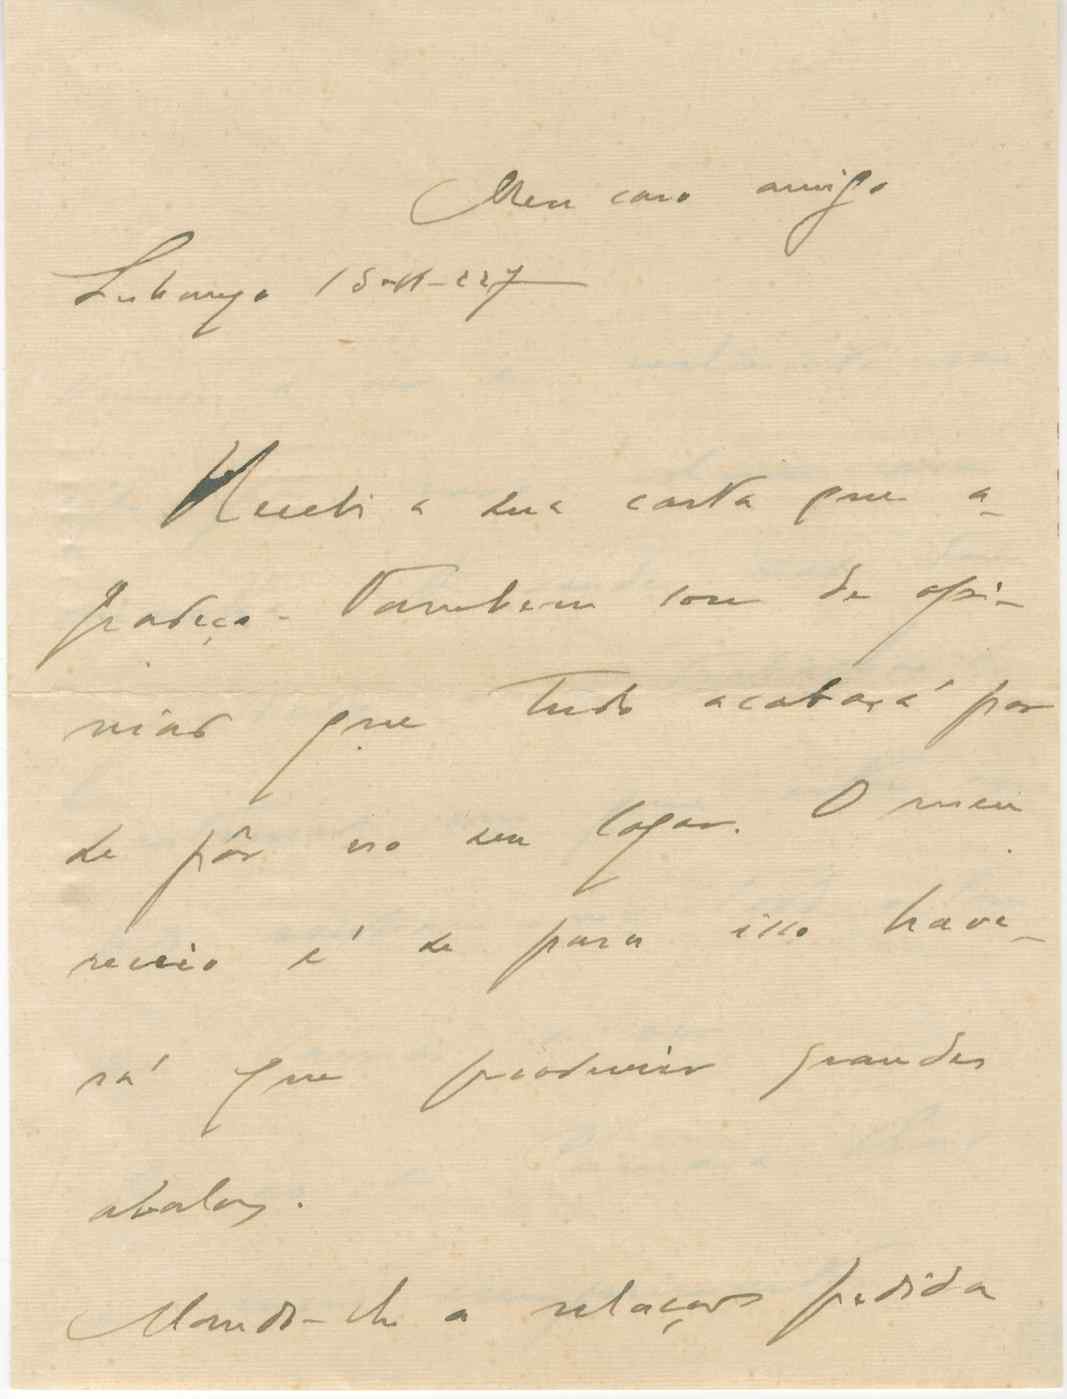 Meu caro amigo
Lubango 15-11-927
Recebi a sua carta que a-
gradeço. Tambem sou de opi-
nião que tudo acabará por
se pôr no seu logar. O meu
receio é se para isso have-
rá que produzir grandes
abalos.
Mando-lhe a relação pedida